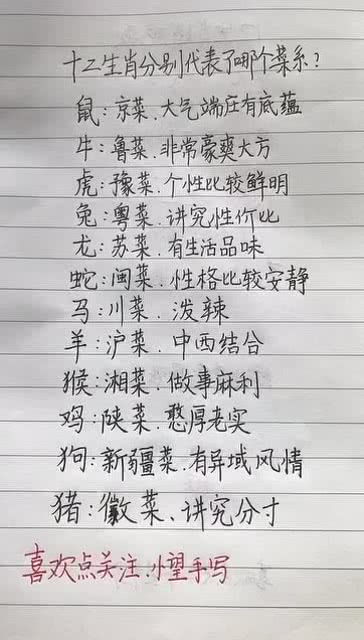 十二生肖分别代表了哪个菜系？
鼠：京菜、大气端庄有底蕴
牛：鲁菜、非常豪爽大方
虎：豫菜、个性比较鲜明
兔：粤菜、讲究性价比
龙：苏菜、有生活品味
蛇：闽菜、性格比较安静
马：川菜、泼辣
羊：沪菜、中西结合
猴：湘菜、做事麻利
鸡：陕菜、憨厚老实
狗：新疆菜、有异域风情
猪：徽菜、讲究分寸
喜欢点关注、小望手写